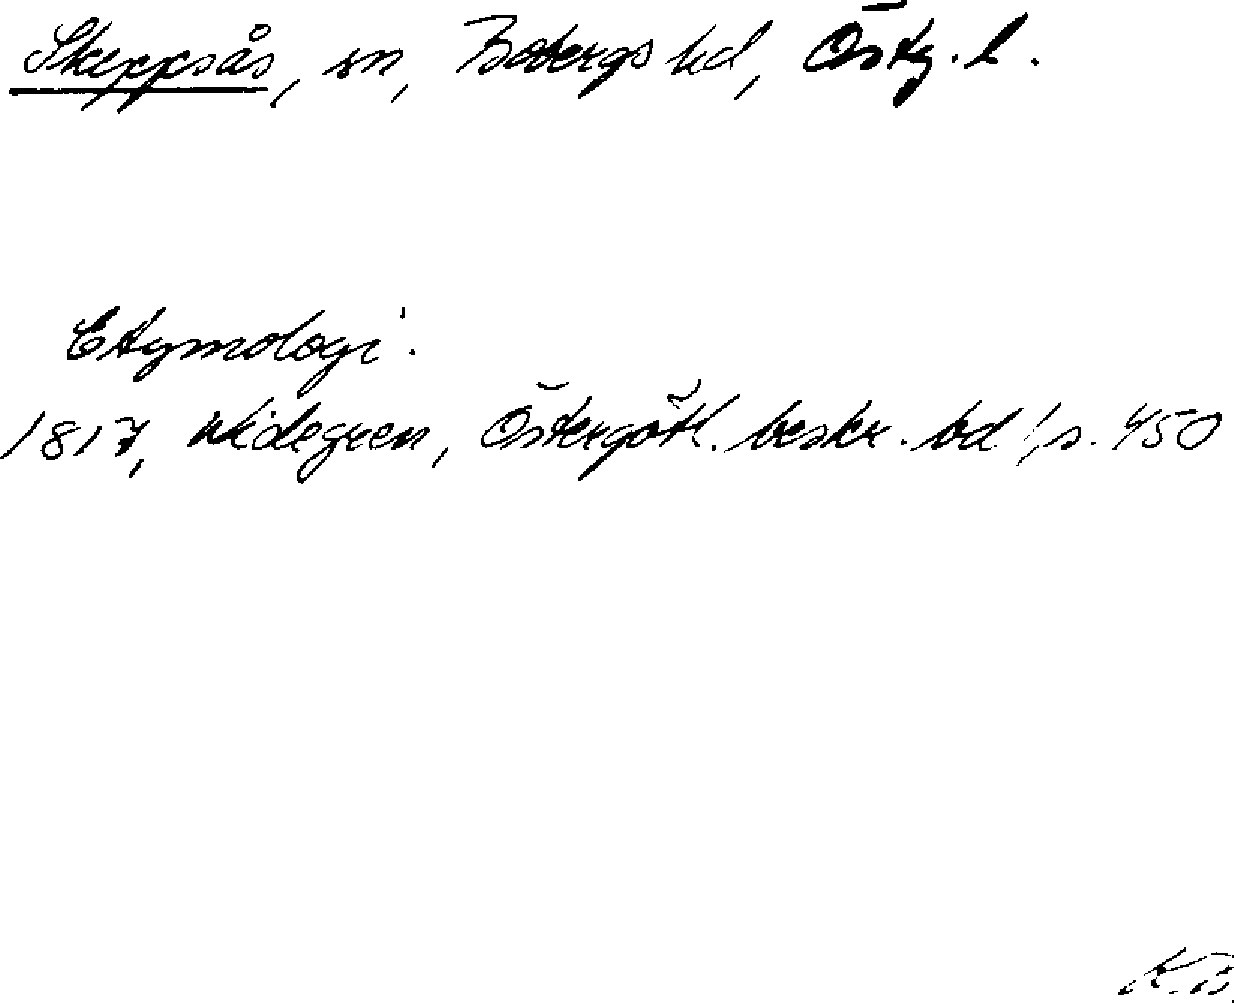 Skeppsås, sn, Bobergs hd, Östg. l.
Etymologi.
1817, Widegren, Östergötl. beskr. bd 1, s. 450
K.B.